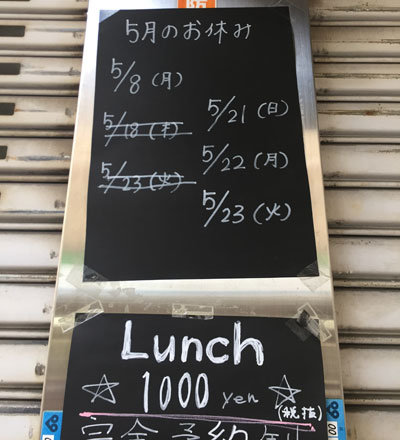 防
5月のお休み
5/8 (月)
5/18 (木)
5/23 (火)
5/21 (日)
5/22 (月)
5/23 (火)
Lunch
☆ 1000 yen ☆
(税抜)
完全予約制